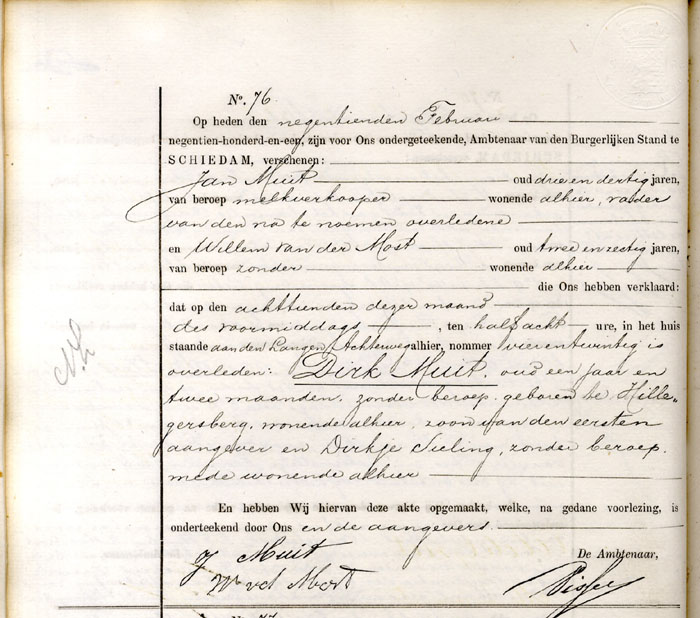 No. 76
Op heden den negentienden Februari
negentien-honderd-en-een, zijn voor Ons ondergeteekende, Ambtenaar van den Burgerlijken Stand te
SCHIEDAM, verschenen:
Jan Muit oud drie en dertig jaren,
van beroep melkverkooper wonende alhier, vader
van den na te noemen overledene
en Willem van der Most oud twee en zestig jaren,
van beroep zonder wonende alhier
die Ons hebben verklaard:
dat op den achttienden dezer maand
des voormiddags, ten half acht ure, in het huis
staande aan den Langen Achterweg alhier, nommer vierentwintig is
overleden: Dirk Muit, oud een jaar en
twee maanden, zonder beroep, geboren te Hille-
gersberg, wonende alhier, zoon van den eersten
aangever en Dirkje Sieling, zonder beroep,
mede wonende alhier
En hebben Wij hiervan deze akte opgemaakt, welke, na gedane voorlezing, is
onderteekend door Ons en de aangevers.
J Muit De Ambtenaar,
W vd Most
No. 77